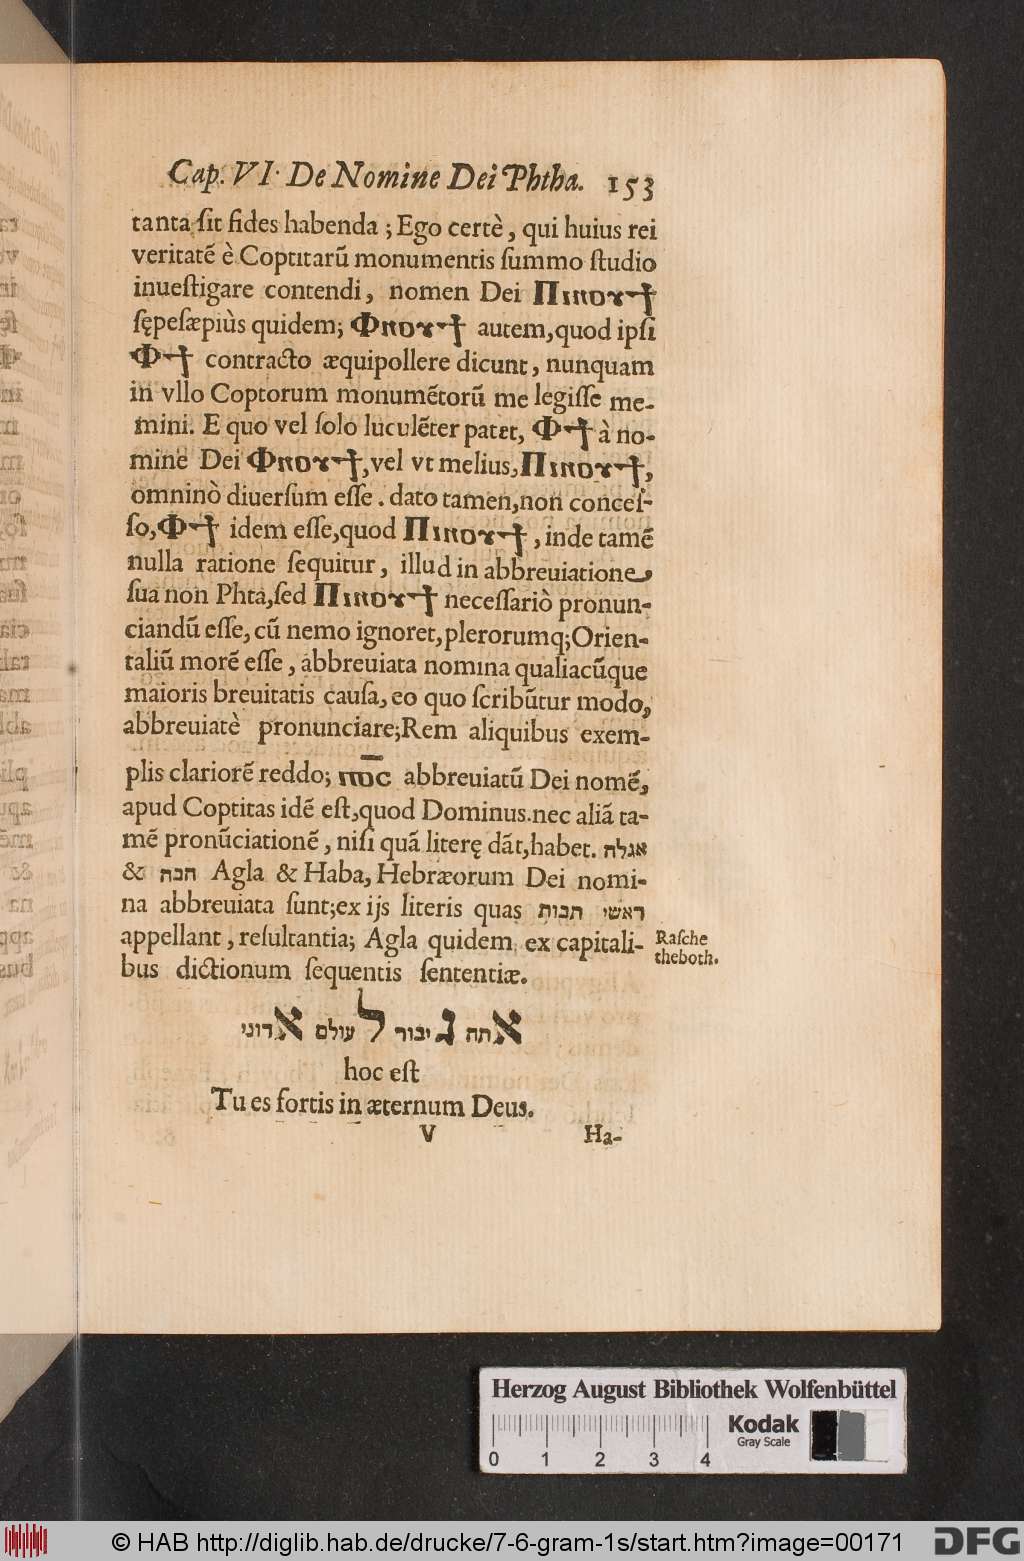 Cap. VI. De Nomine Dei Phtha. 153
tanta ſit fides habenda ; Ego certè, qui huius rei
veritatẽ è Coptitarũ monumentis ſummo ſtudio
inueſtigare contendi, nomen Dei Ⲡⲓⲛⲟⲩϯ
ſępeſæpiùs quidem; Ⲫⲛⲟⲩϯ autem, quod ipſi
Ⲫϯ contracto æquipollere dicunt, nunquam
in vllo Coptorum monumẽtorũ me legiſſe me-
mini. E quo vel ſolo luculẽter patet, Ⲫϯ à no-
mine Dei Ⲫⲛⲟⲩϯ, vel vt melius, Ⲡⲓⲛⲟⲩϯ,
omninò diuerſum eſſe. dato tamen, non conceſ-
ſo, Ⲫϯ idem eſſe, quod Ⲡⲓⲛⲟⲩϯ, inde tamẽ
nulla ratione ſequitur, illud in abbreuiatione
ſua non Phta, ſed Ⲡⲓⲛⲟⲩϯ neceſſariò pronun-
ciandũ eſſe, cũ nemo ignoret, plerorumq; Orien-
taliũ morẽ eſſe, abbreuiata nomina qualiacũque
maioris breuitatis cauſa, eo quo ſcribũtur modo,
abbreuiatè pronunciare; Rem aliquibus exem-
plis clariorẽ reddo; abbreuiatũ Dei nomẽ,
apud Coptitas idẽ eſt, quod Dominus. nec aliã ta-
mẽ pronũciationẽ, niſi quã literę dãt, habet. אגלה
& חבה Agla & Haba, Hebræorum Dei nomi-
na abbreuiata ſunt; ex ijs literis quas ראשי תבות
appellant, reſultantia; Agla quidem ex capitali-
bus dictionum ſequentis ſententiæ.
Raſche
theboth.
אתה גיבור לעולם אדוני
hoc eſt
Tu es fortis in æternum Deus.
V Ha-
Herzog August Bibliothek Wolfenbüttel
Kodak
Gray Scale
0 1 2 3 4
© HAB http://diglib.hab.de/drucke/7-6-gram-1s/start.htm?image=00171
DFG